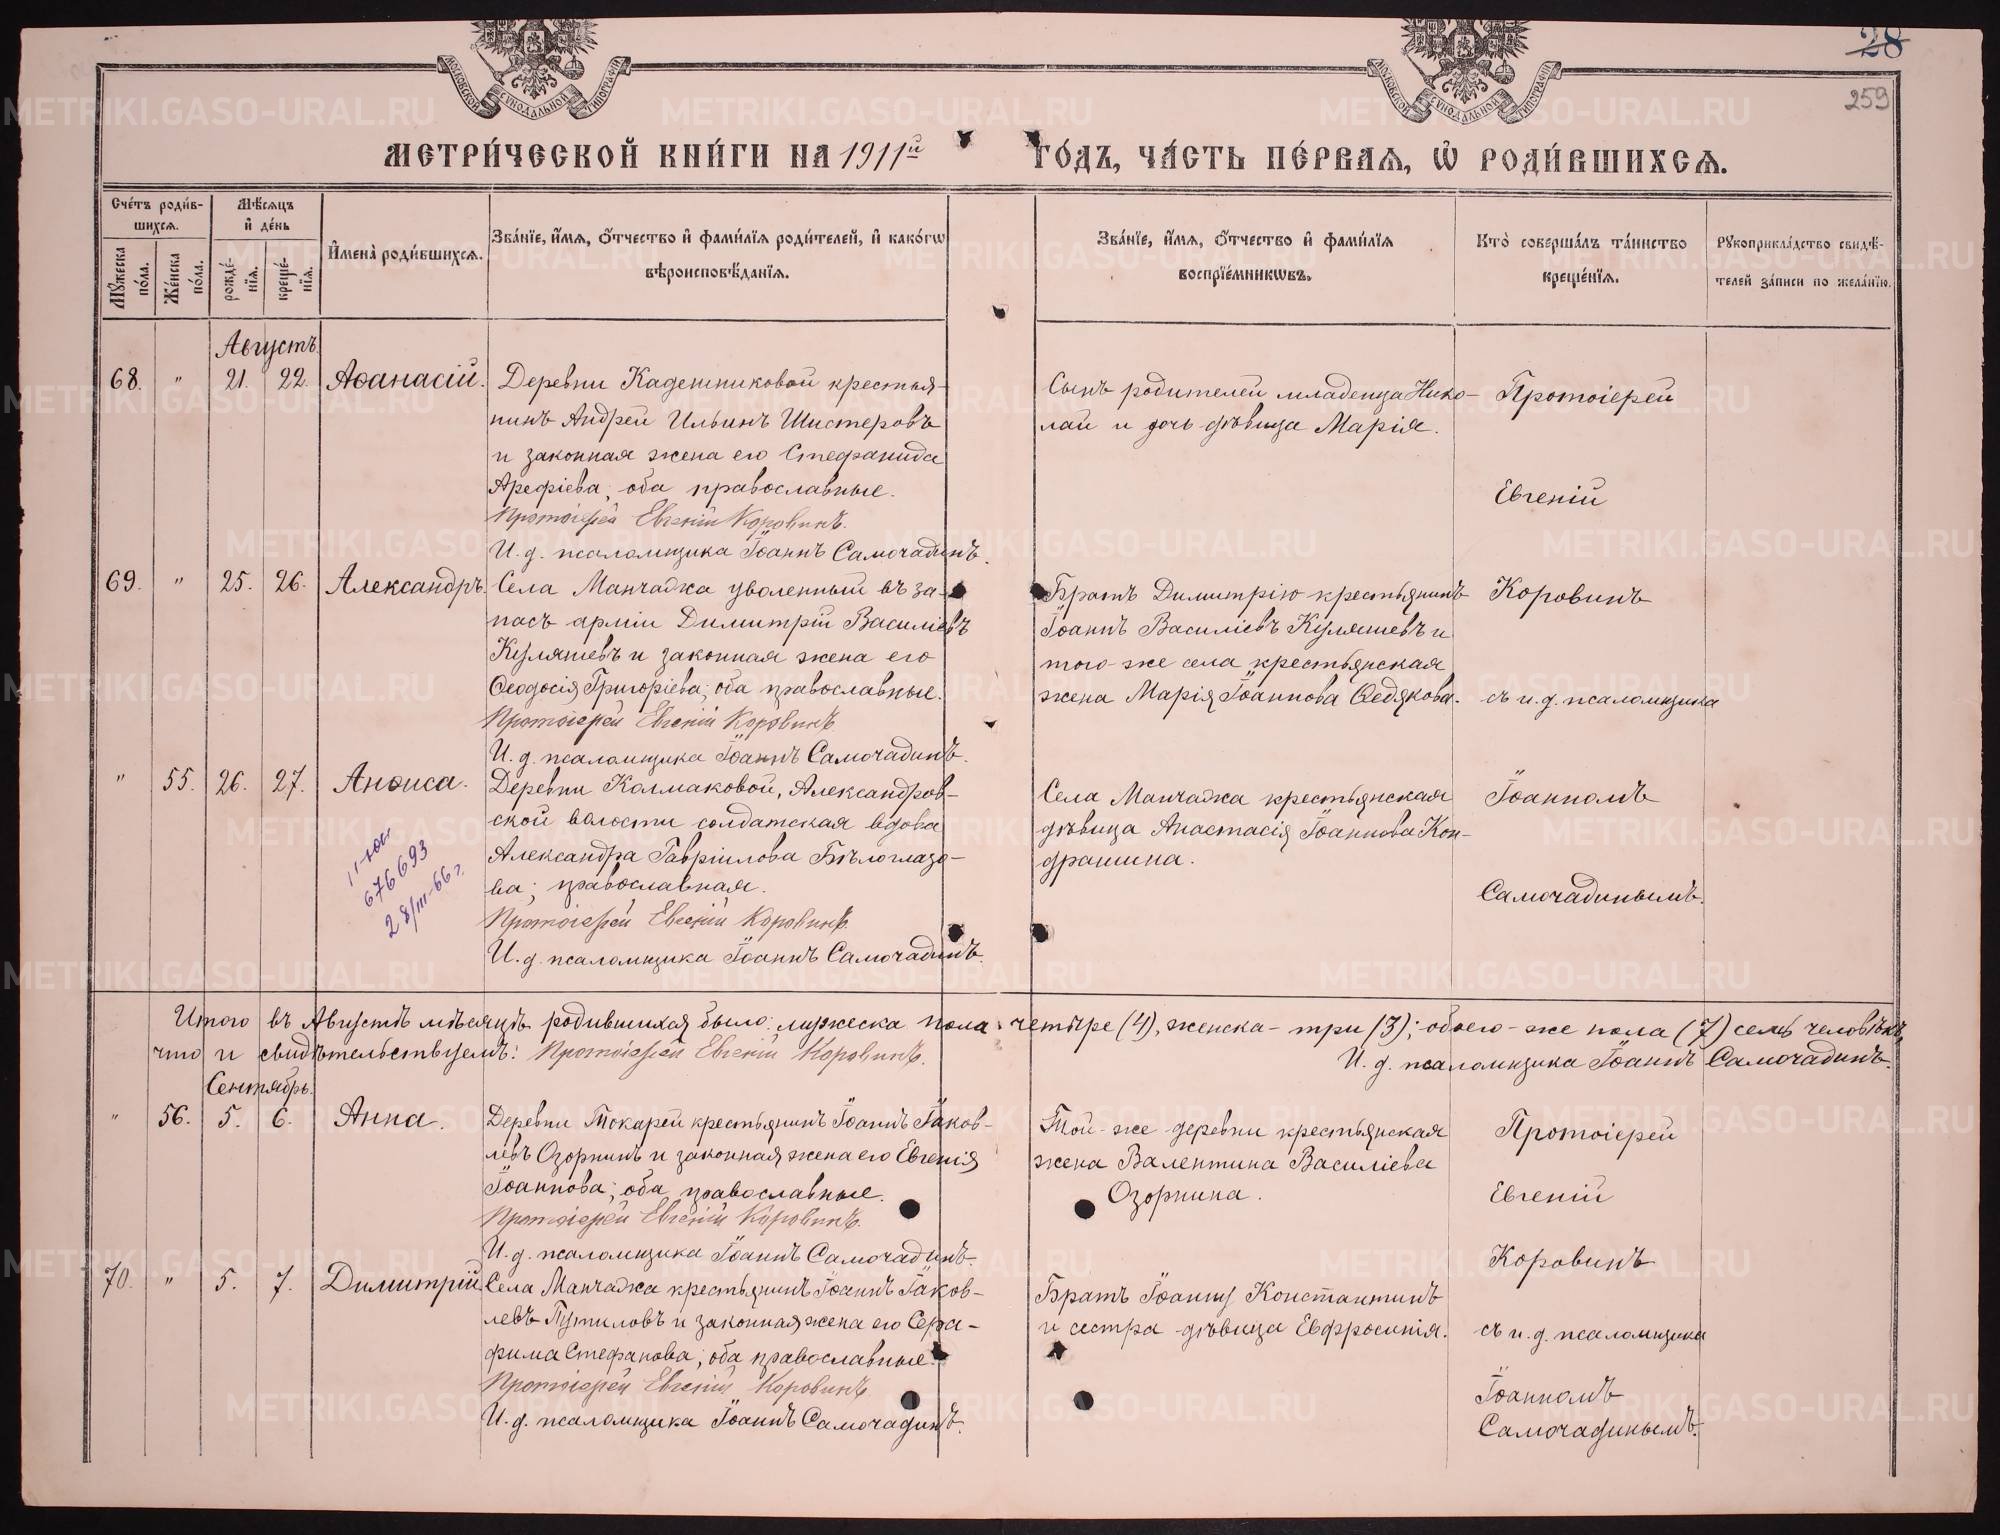 28
259
МОСКОВСКОЙ СѴНОДАЛЬНОЙ ТИПОГРАФІИ
МОСКОВСКОЙ СѴНОДАЛЬНОЙ ТИПОГРАФІИ
МЕТРИ́ЧЕСКОЙ КНИ́ГИ НА 1911й ГО́ДЪ, ЧА́СТЬ ПЕ́РВАѦ, Ѡ҆ РОДИ́ВШИХСѦ.
Сче́тъ роди́в-
шихсѧ.
Мꙋ́жеска по́ла.
Же́нска по́ла.
Мѣ́сѧцъ
и҆ де́нь
рожде́-
нїѧ.
креще́-
нїѧ.
И҆мена̀ роди́вшихсѧ.
Зва́нїе, и҆́мѧ, ѻ҆́тчество и҆ фами́лїѧ роди́телей, и҆ како́гѡ
вѣроисповѣ́данїѧ.
Зва́нїе, и҆́мѧ, ѻ҆́тчество и҆ фами́лїѧ
воспрїе́мникѡвъ.
Кто̀ соверша́лъ та́инство
креще́нїѧ.
Рꙋкоприкла́дство свидѣ́-
телей за́писи по жела́нїю.
Августъ
68. " 21. 22. Аѳанасій.
Деревни Кадешниковой крестья-
нинъ Андрей Ильинъ Шистеровъ
и законная жена его Стефанида
Арефіева; оба православные.
Протоіерей Евгеній Коровинъ.
И. д. псаломщика Іоаннъ Самочадинъ.
Сынъ родителей младенца Нико-
лай и дочь дѣвица Марія.
Протоіерей
Евгеній
69. " 25. 26. Александръ.
Села Манчажа уволенный въ за-
пасъ арміи Димитрій Василіевъ
Куляшевъ и законная жена его
Ѳеодосія Григоріева; оба православные.
Протоіерей Евгеній Коровинъ
И. д. псаломщика Іоаннъ Самочадинъ.
Братъ Димитрію крестьянинъ
Іоаннъ Василіевъ Куляшевъ и
того-же села крестьянская
жена Марія Іоаннова Ѳедякова.
Коровинъ
съ и. д. псаломщика
" 55. 26. 27. Анѳиса.
676693
28/III-66 г.
Деревни Колмаковой, Александров-
ской волости солдатская вдова
Александра Гавріилова Бѣлоглазо-
ва; православная.
Протоіерей Евгеній Коровинъ.
И. д. псаломщика Іоаннъ Самочадинъ.
Села Манчажа крестьянская
дѣвица Анастасія Іоаннова Кон-
драшина.
Іоанномъ
Самочадинымъ.
Итого въ Августѣ мѣсяцѣ родившихся было: мужеска пола - четыре (4), женска - три (3); обоего-же пола (7) семь человѣкъ,
что и свидѣтельствуемъ: Протоіерей Евгеній Коровинъ.
И. д. псаломщика Іоаннъ Самочадинъ.
Сентябрь.
" 56. 5. 6. Анна.
Деревни Токарей крестьянинъ Іоаннъ Іаков-
левъ Озорнинъ и законная жена его Евгенія
Іоаннова; оба православные.
Протоіерей Евгеній Коровинъ.
И. д. псаломщика Іоаннъ Самочадинъ.
Той-же деревни крестьянская
жена Валентина Василіева
Озорнина.
Протоіерей
Евгеній
Коровинъ
70. " 5. 7. Димитрій.
Села Манчажа крестьянинъ Іоаннъ Іаков-
левъ Путиловъ и законная жена его Сера-
фима Стефанова; оба православные.
Протоіерей Евгеній Коровинъ
И. д. псаломщика Іоаннъ Самочадинъ.
Братъ Іоанну Константинъ
и сестра дѣвица Евфросинія.
съ и. д. псаломщика
Іоанномъ
Самочадинымъ.
METRIKI.GASO-URAL.RU